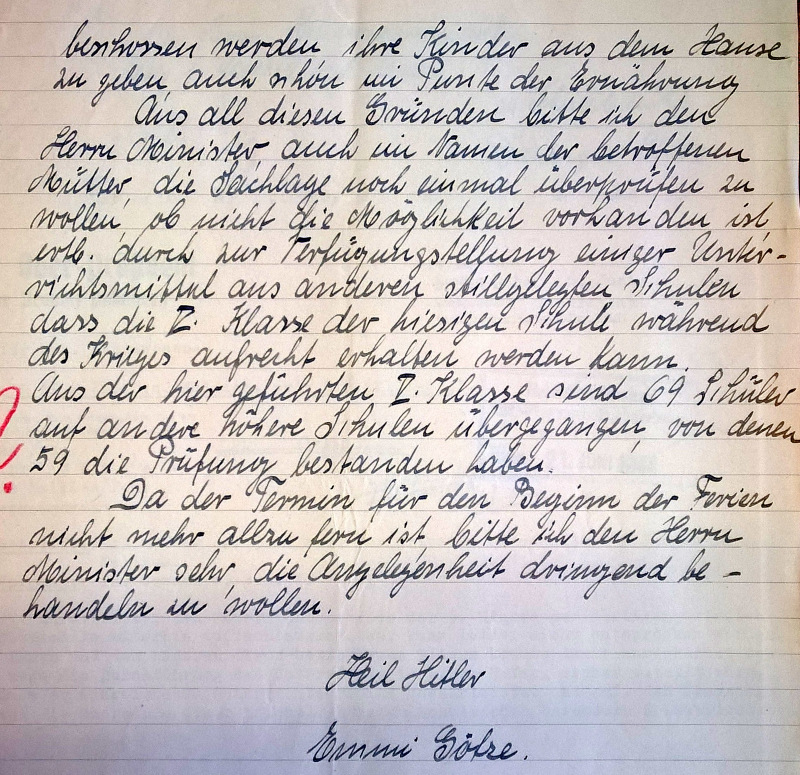 beschossen werden ihre Kinder aus dem Hause
zu geben, auch schon im Punkte der Ernährung
Aus all diesen Gründen bitte ich den
Herrn Minister, auch im Namen der betroffenen
Mütter, die Sachlage noch einmal überprüfen zu
wollen, ob nicht die Möglichkeit vorhanden ist
evtl. durch zur Verfügungstellung einiger Unter-
richtsmittel aus anderen stillgelegten Schulen
dass die I. Klasse der hiesigen Schule während
des Krieges aufrecht erhalten werden kann.
Aus der hier geführten I. Klasse sind 69 Schüler
auf andere höhere Schulen übergegangen, von denen
59 die Prüfung bestanden haben.
Da der Termin für den Beginn der Ferien
nicht mehr allzu fern ist, bitte ich den Herrn
Minister sehr, die Angelegenheit dringend be-
handeln zu wollen.
Heil Hitler
Emmi Götze.